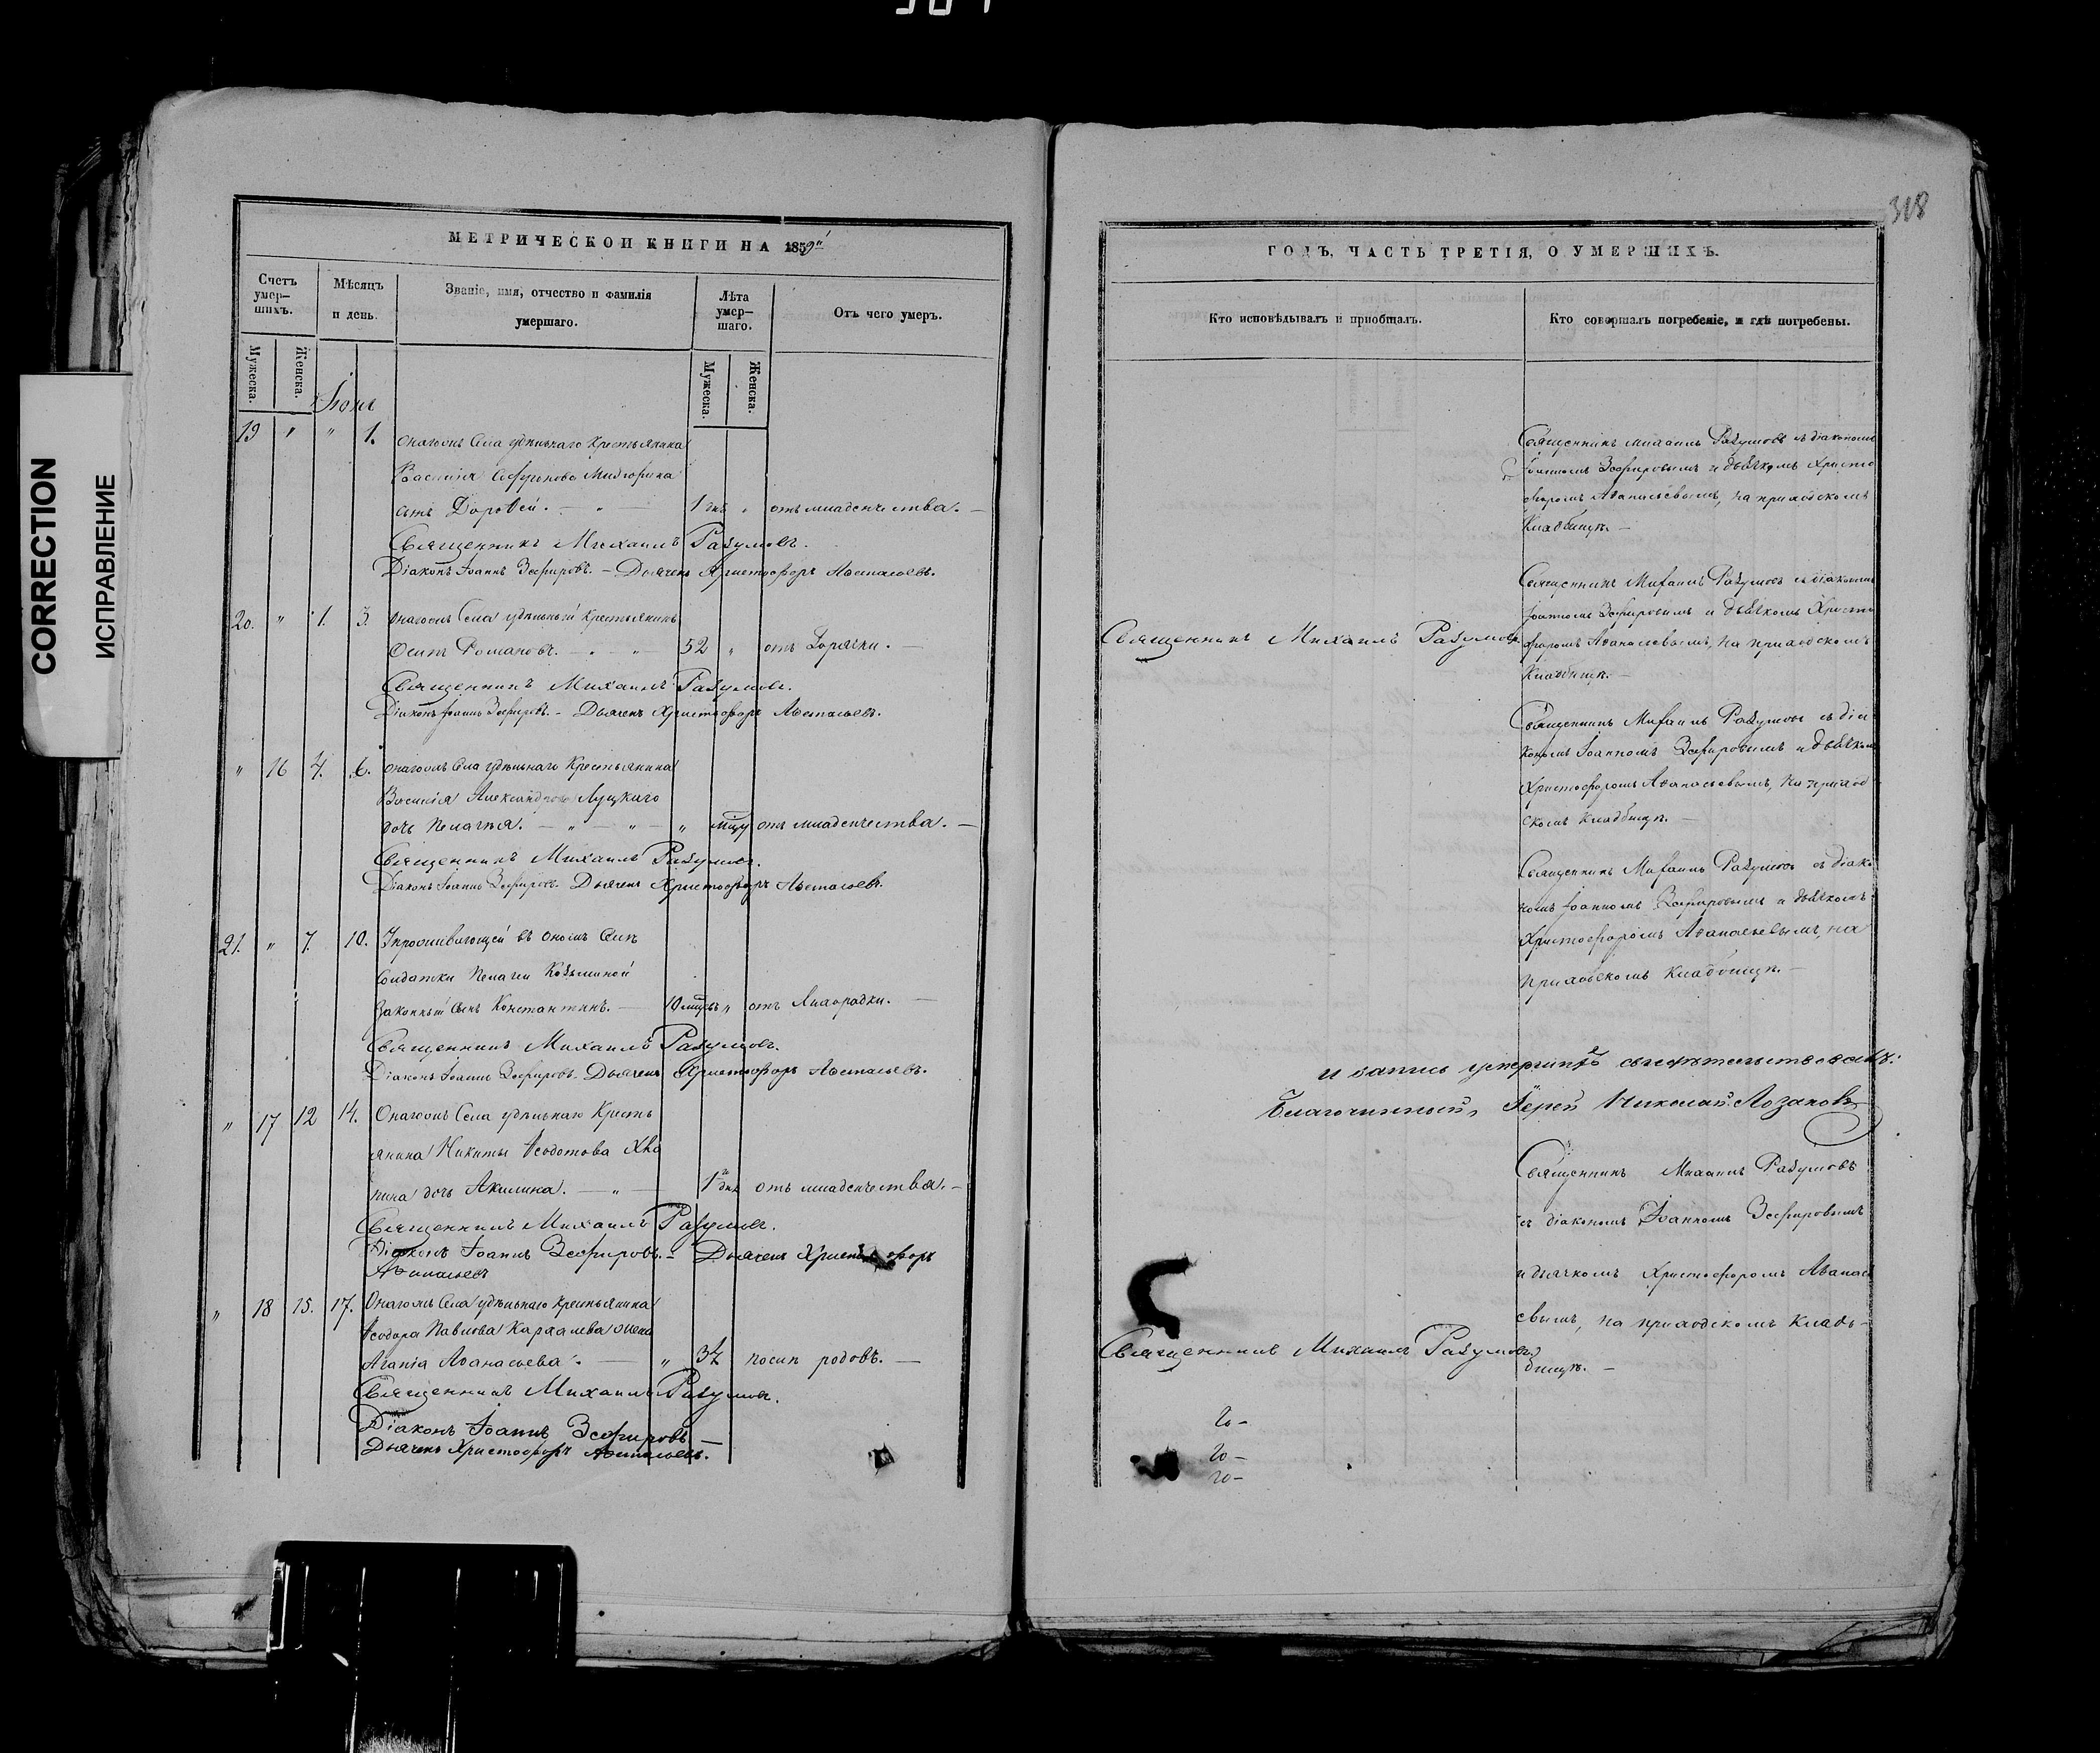 318
CORRECTION
ИСПРАВЛЕНИЕ
МЕТРИЧЕСКОЙ КНИГИ НА 1859й
Счетъ умер–шихъ.
Мѣсяцъ и день.
Званіе, имя, отчество и фамилія умершаго.
Лѣта умер–шаго.
Отъ чего умеръ.
Мужеска.
Женска.
Мужеска.
Женска.
19 " " 1. Онагожъ Села удѣльнаго Крестьянина
Василія Софронова
сынъ Дороѳей. — " — 1 дня " отъ младенчества. —
Священникъ Михаилъ Разумовъ.
Діаконъ Іоаннъ Зефировъ. – Дьячекъ Христофоръ Аѳанасьевъ.
20. " 1. 3. Онагожъ Села удѣльный крестьянинъ
Осипъ Романовъ. — " — 52 " отъ Горячки. —
Священникъ Михаилъ Разумовъ.
Діаконъ Іоаннъ Зефировъ. – Дьячекъ Христофоръ Аѳанасьевъ.
" 16 4. 6. Онагожъ Села удѣльнаго Крестьянина
Василія Александрова Луцкаго
дочь Пелагія. — " — " — " отъ младенчества. —
Священникъ Михаилъ Разумовъ.
Діаконъ Іоаннъ Зефировъ. Дьячекъ Христофоръ Аѳанасьевъ.
21. " 7. 10. У проживающей въ ономъ Селѣ
Солдатки Пелагеи Козьминой
законный сынъ Константинъ. — 10 " отъ Лихорадки. —
Священникъ Михаилъ Разумовъ.
Діаконъ Іоаннъ Зефировъ. Дьячекъ Христофоръ Аѳанасьевъ.
" 17 12 14. Онагожъ Села удѣльнаго Кресть
янина Никиты Ѳеодотова
дочь Акилина. — " — 1 дня отъ младенчества. –
Священникъ Михаилъ Разумовъ.
Діаконъ Іоаннъ Зефировъ. – Дьячекъ Христофоръ
Аѳанасьевъ
" 18 15. 17. Онагожъ Села удѣльнаго Крестьянина
Ѳеодора Павлова жена
Агапія Аѳанасьева. — " 37 послѣ родовъ. —
Священникъ Михаилъ Разумовъ.
Діаконъ Іоаннъ Зефировъ —
Дьячекъ Христофоръ Аѳанасьевъ.
ГОДЪ, ЧАСТЬ ТРЕТІЯ, О УМЕРШИХЪ.
Кто исповѣдывалъ и пріобщалъ.
Кто совершалъ погребеніе, и гдѣ погребены.
Священникъ Михаилъ Разумовъ съ діакономъ
Іоанномъ Зефировымъ и дьячкомъ Христо
форомъ Аѳанасьевымъ, на приходскомъ
Кладбищѣ. —
Священникъ Михаилъ Разумовъ съ діакономъ
Іоанномъ Зефировымъ и дьячкомъ Христо
Священникъ Михаилъ Разумовъ
форомъ Аѳанасьевымъ, на приходскомъ
Кладбищѣ. —
Священникъ Михаилъ Разумовъ съ діа
кономъ Іоанномъ Зефировымъ и дьячкомъ
Христофоромъ Аѳанасьевымъ, на приход
скомъ кладбищѣ. —
Священникъ Михаилъ Разумовъ съ діако
номъ Іоанномъ Зефировымъ и дьячкомъ
Христофоромъ Аѳанасьевымъ, на
приходскомъ Кладбищѣ. —
и запись умершихъ свидѣтельствовалъ:
Благочинный, Іерей Николай Лозановъ
Священникъ Михаилъ Разумовъ
съ діакономъ Іоанномъ Зефировымъ
и дьячкомъ Христофоромъ Аѳанась
евымъ, на приходскомъ кладъ–
Священникъ Михаилъ Разумовъ
бищѣ. —